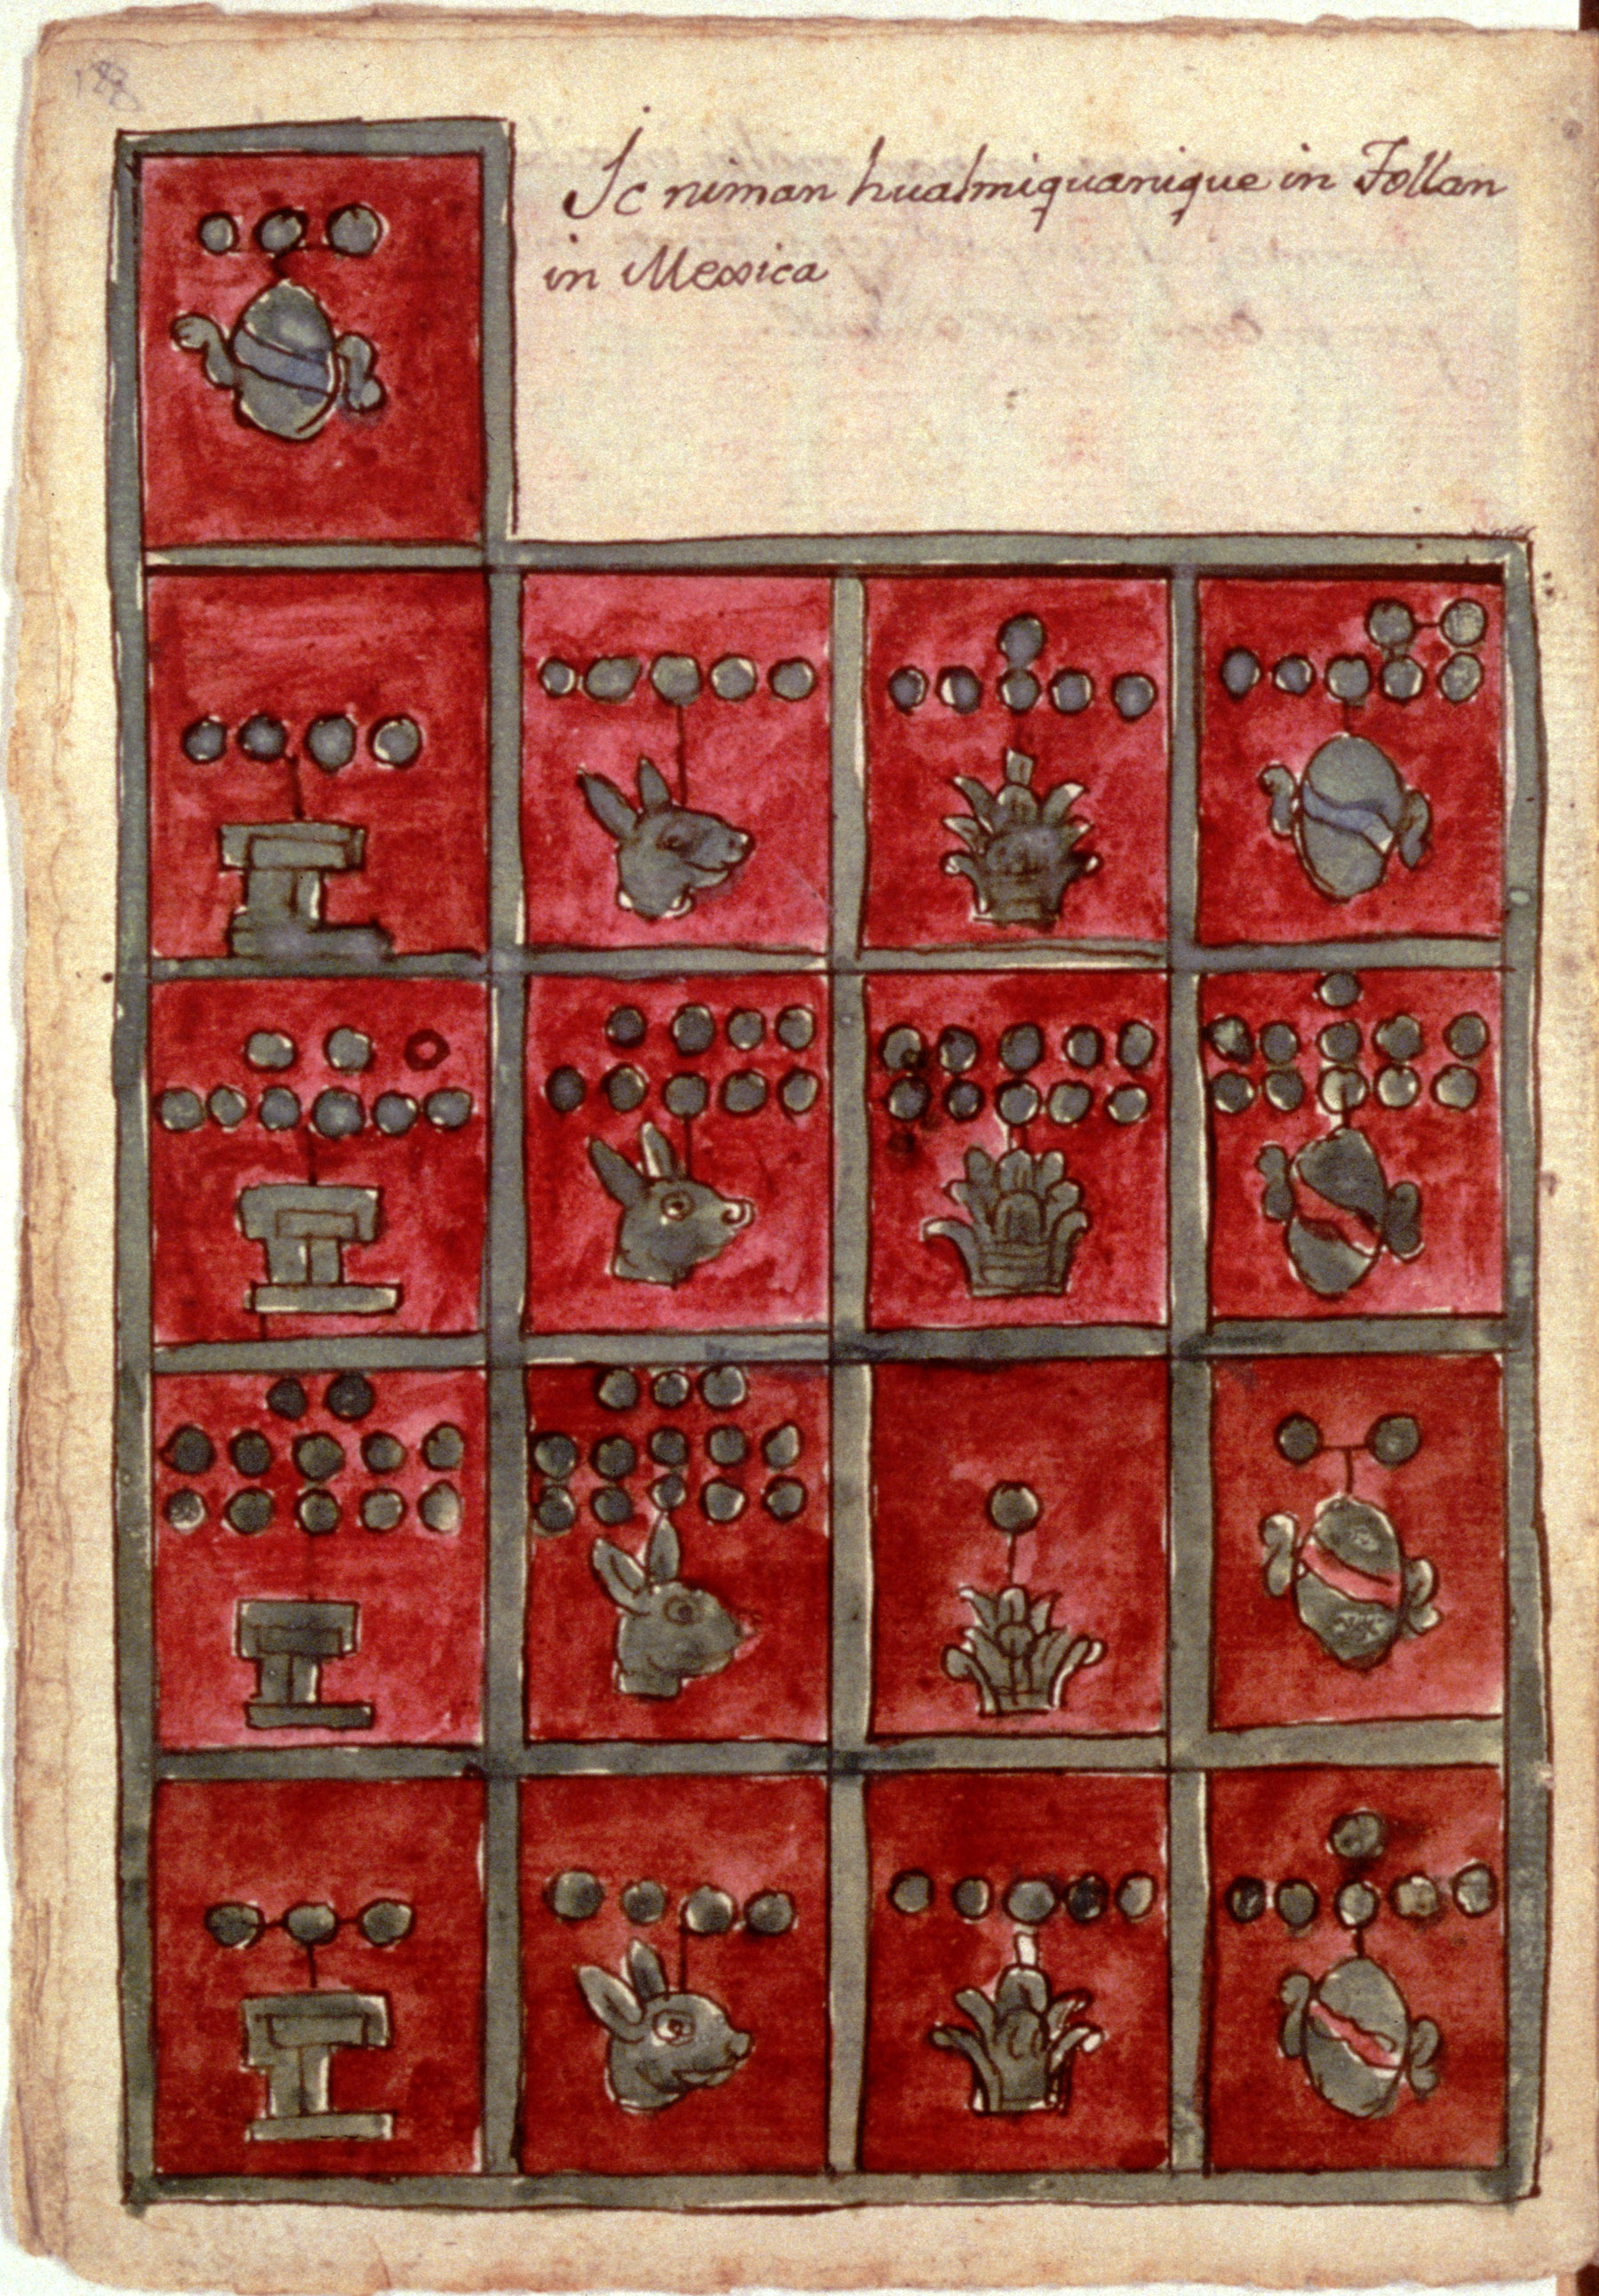 Ic niman hualmiquanique in Tollan
in Mexica